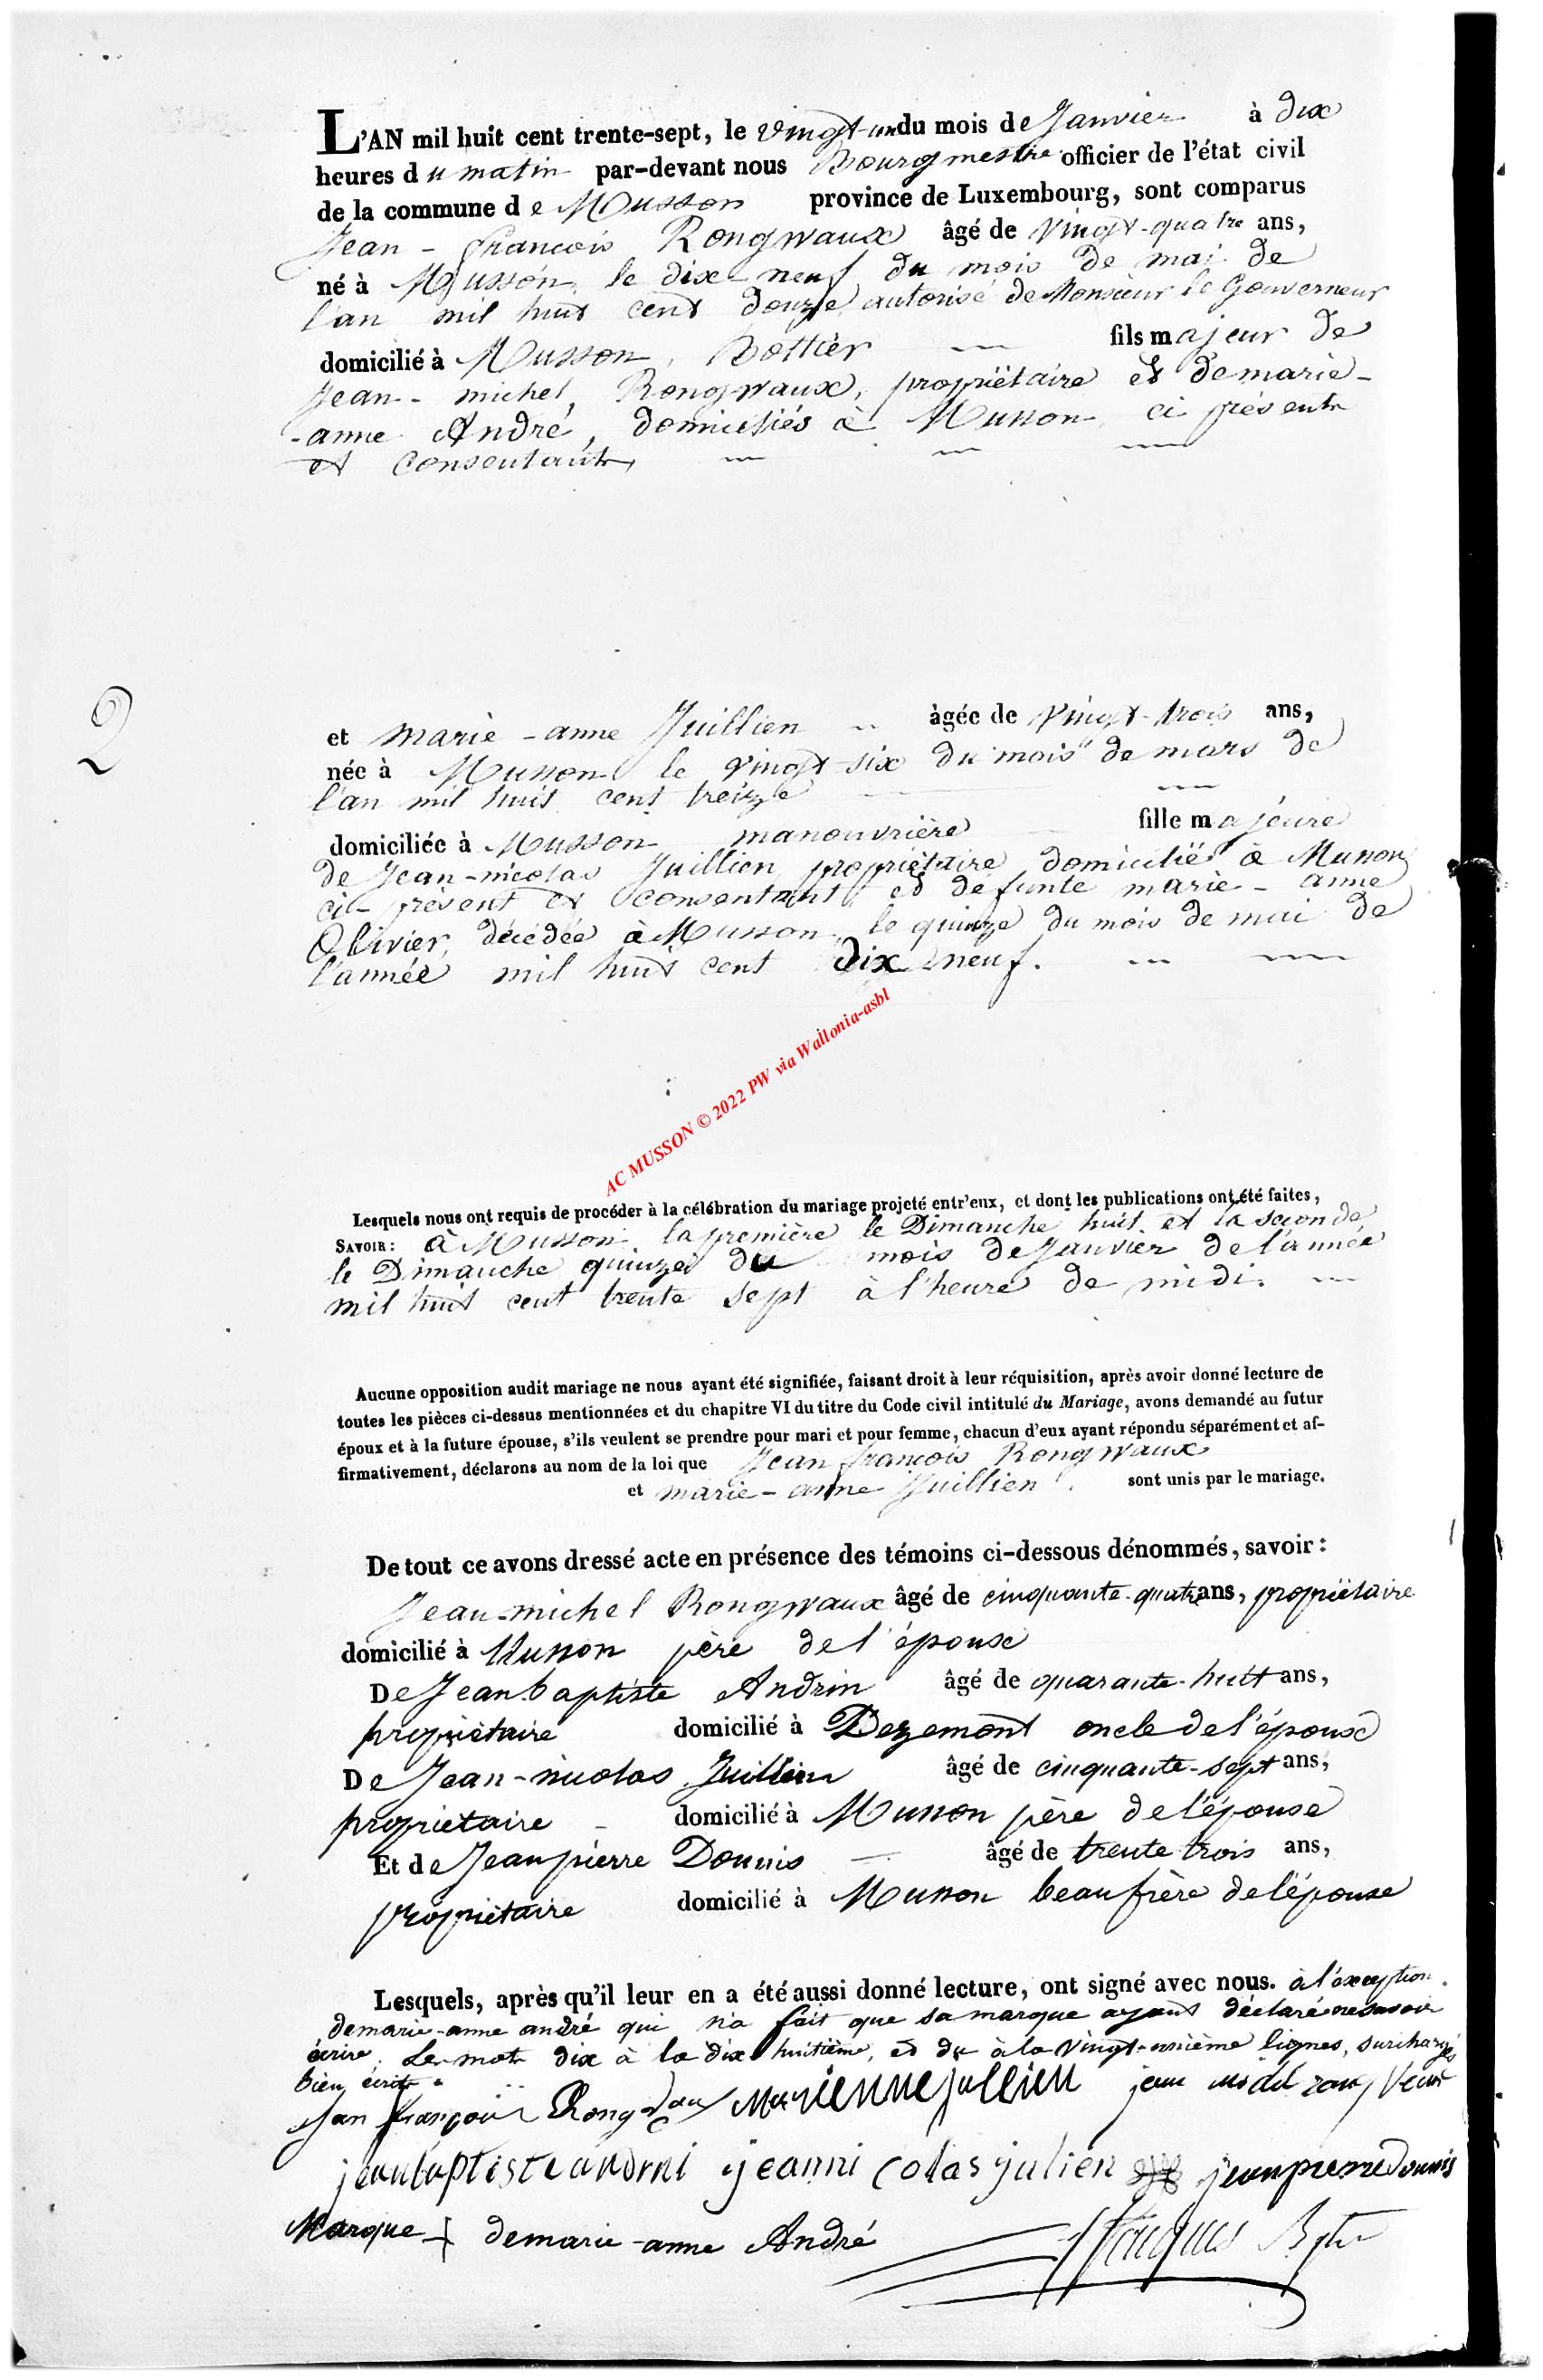 L'AN mil huit cent trente-sept, le vingt-un du mois de Janvier à dix
heures du matin par-devant nous Bourgmestre officier de l'état civil
de la commune de Musson province de Luxembourg, sont comparus
Jean - francois Rongvaux âgé de vingt-quatre ans,
né à Musson, le dix neuf du mois de mai de
l'an mil huit cent douze autorisé de Monsieur le Gouverneur
domicilié à Musson, Bottier fils majeur de
Jean - michel Rongvaux, propriétaire et de marie-
-anne André, domiciliés à Musson, ci présents
et consentants
2
et marie - anne Juillien âgée de vingt-trois ans,
née à Musson le vingt-six du mois de mars de
l'an mil huit cent treize
domiciliée à Musson manouvrière fille majeure
de Jean-nicolas Juillien propriétaire domicilié à Musson
ci-présent et consentant, et défunte marie - anne
Olivier, décédée à Musson, le quinze du mois de mai de
l'année mil huit cent dix neuf.
AC MUSSON © 2022 PW via Wallonia-asbl
Lesquels nous ont requis de procéder à la célébration du mariage projeté entr'eux, et dont les publications ont été faites,
SAVOIR : à Musson, la première le Dimanche huit et la seconde
le Dimanche quinze du mois de Janvier de l'année
mil huit cent trente sept à l'heure de midi.
Aucune opposition audit mariage ne nous ayant été signifiée, faisant droit à leur réquisition, après avoir donné lecture de
toutes les pièces ci-dessus mentionnées et du chapitre VI du titre du Code civil intitulé du Mariage, avons demandé au futur
époux et à la future épouse, s'ils veulent se prendre pour mari et pour femme, chacun d'eux ayant répondu séparément et af-
firmativement, déclarons au nom de la loi que Jean francois Rongvaux
et marie - anne Juillien sont unis par le mariage.
De tout ce avons dressé acte en présence des témoins ci-dessous dénommés, savoir :
Jean-michel Rongvaux âgé de cinquante-quatre ans, propriétaire
domicilié à Musson père de l'épouse
De Jean baptiste Andrin âgé de quarante-huit ans,
propriétaire domicilié à oncle de l'épouse
De Jean-nicolas Juillien âgé de cinquante-sept ans,
propriétaire domicilié à Musson père de l'épouse
Et de Jean pierre Donnis âgé de trente trois ans,
propriétaire domicilié à Musson beaufrère de l'épouse
Lesquels, après qu'il leur en a été aussi donné lecture, ont signé avec nous. à l'exception
de marie-anne andré qui n'a fait que sa marque ayant déclaré ne savoir
écrire. Les mots dix à la dix huitième, et du à la vingt-unième lignes, surchargés
bien écrits
Jan françoi Rongvau Marienne jullien jean
jean baptiste andrin jeanni colas julien jean pierre donnis
Marque + de marie-anne André